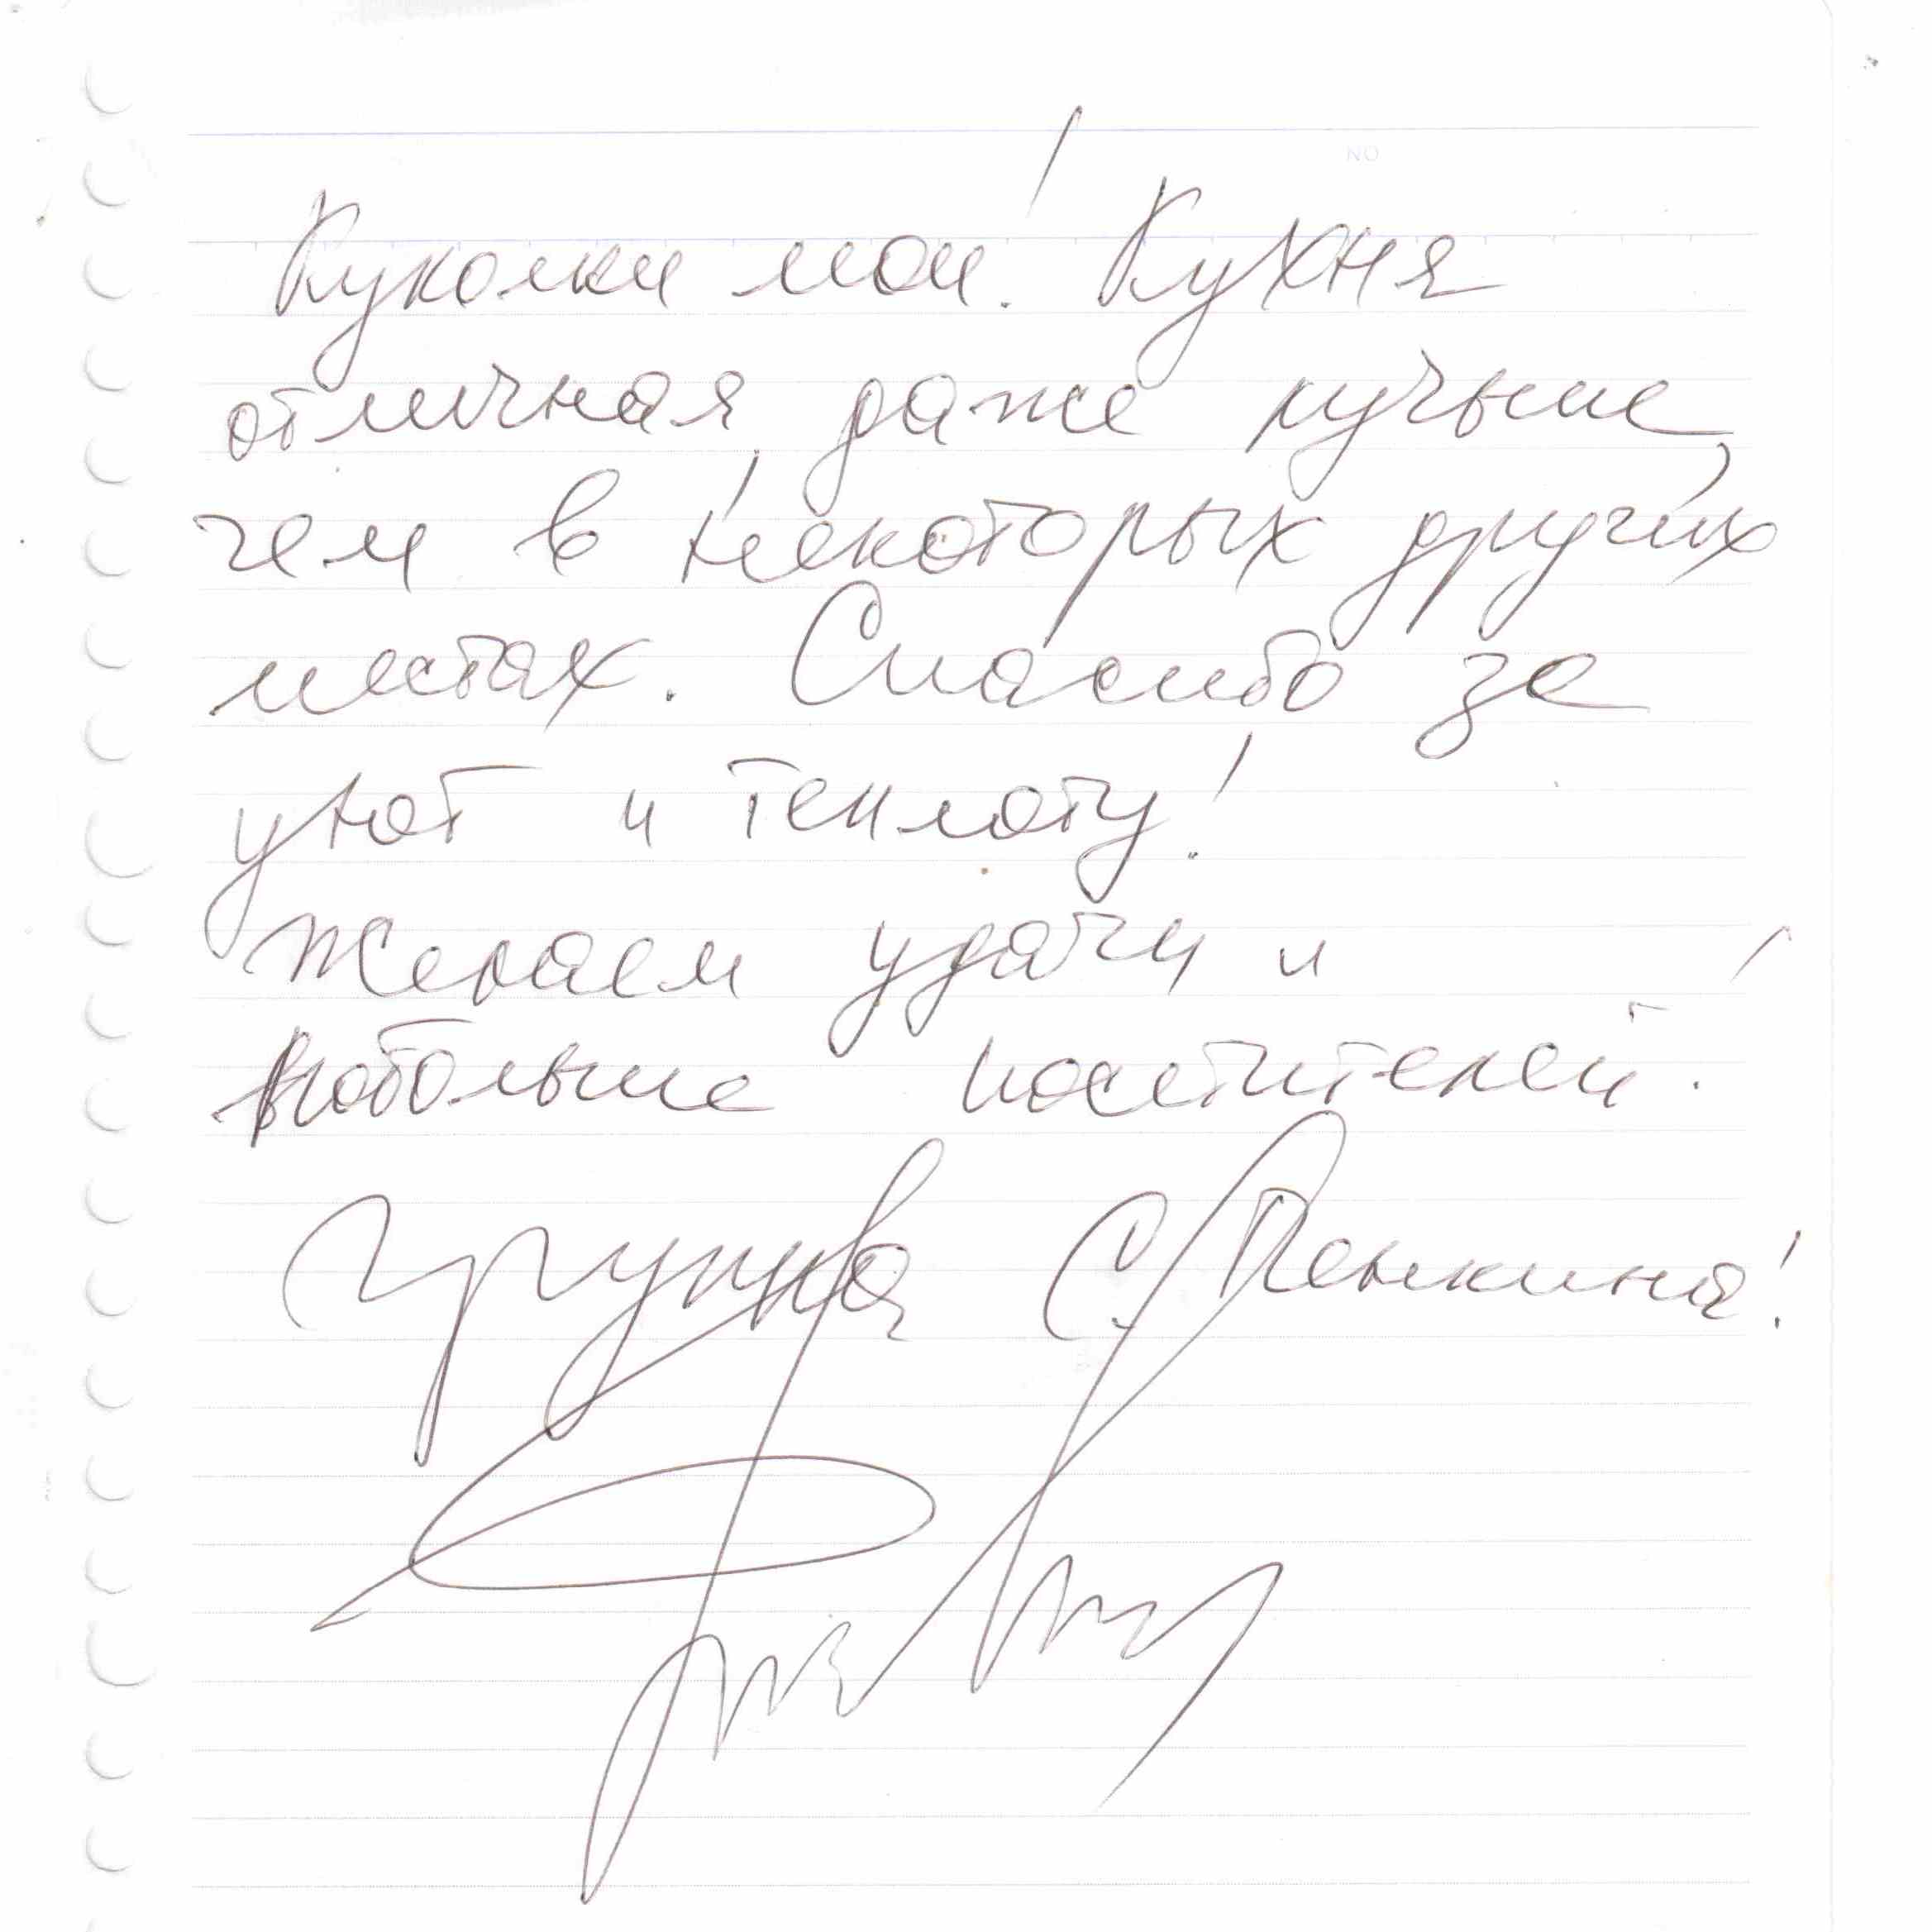 Куколки мои! Кухня
отличная, даже лучьше,
чем в некоторых других
местах. Спасибо за
уют и теплоту!
Желаем удачи и
побольше посетителей!
Группа С. Пенкина!
NO